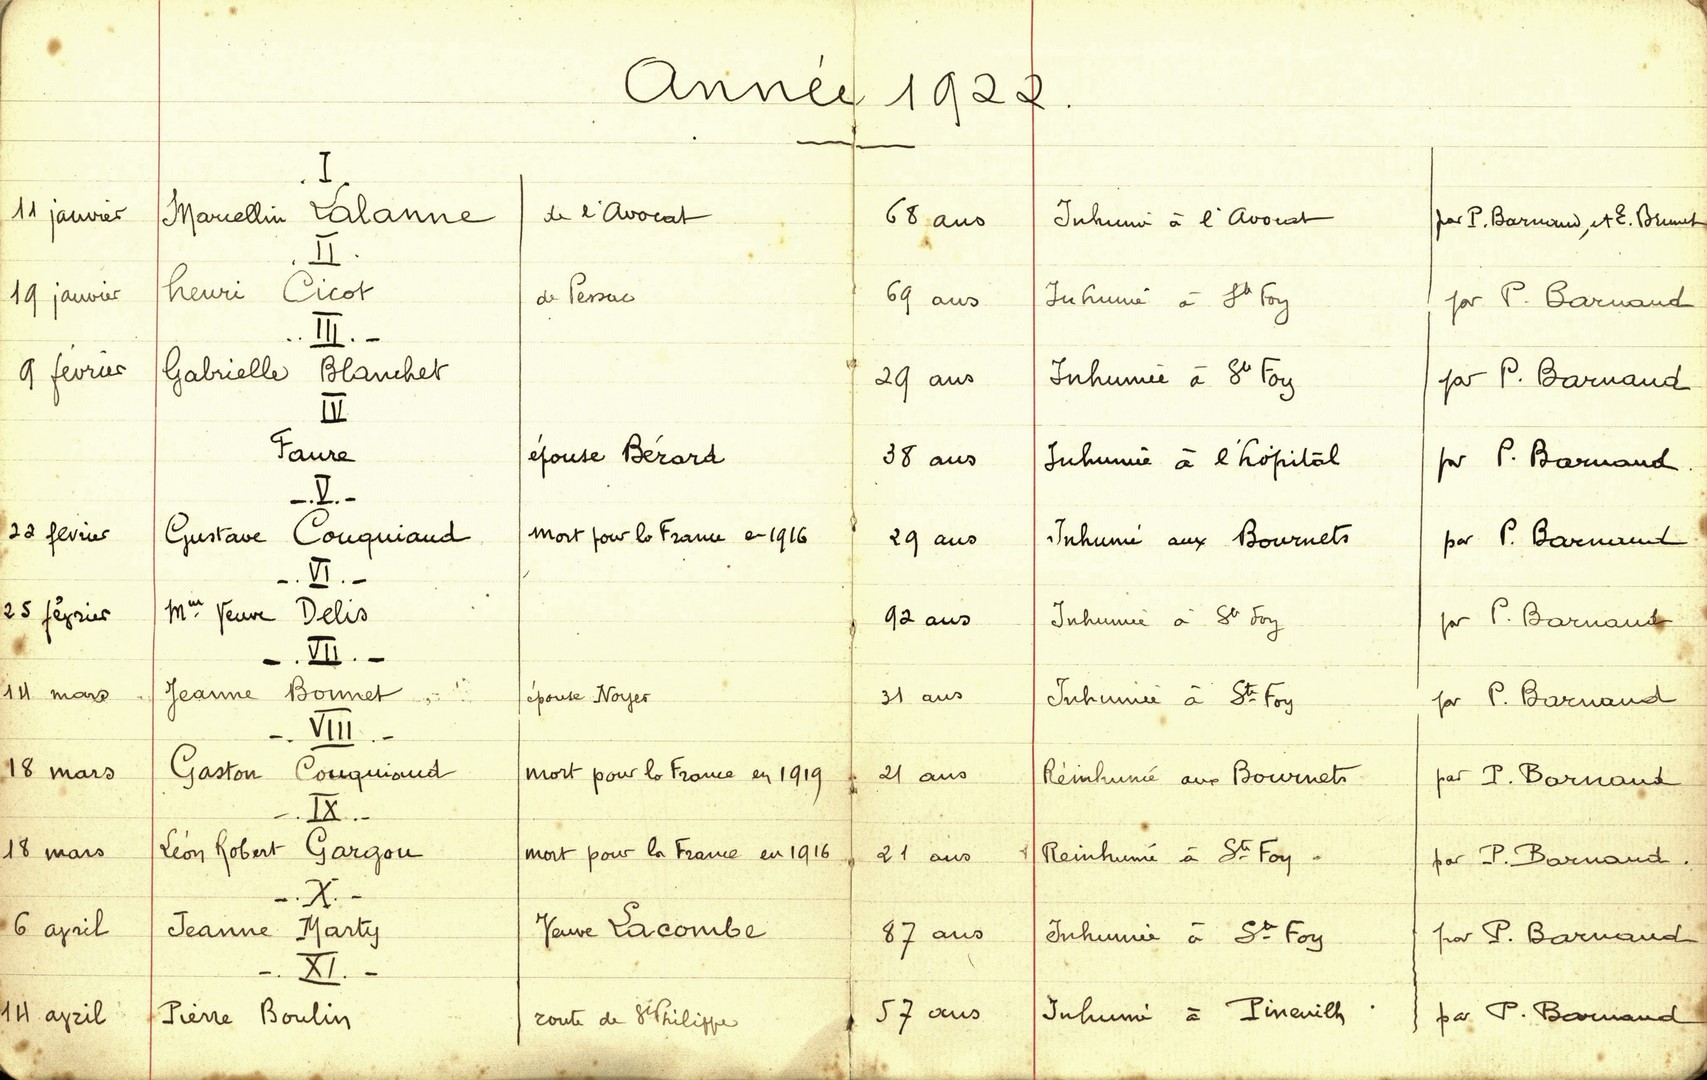 Année 1922.
I
11 janvier Marcellin Lalanne de l'Avocat 68 ans Inhumé à l'Avocat par P. Barnaud, et E. Brunet
II
19 janvier henri Cicot de Pessac 69 ans Inhumé à Ste Foy par P. Barnaud
III
9 février Gabrielle Blanchet 29 ans Inhumée à Ste Foy par P. Barnaud
IV
Faure épouse Bérard 38 ans Inhumée à l'hôpital par P. Barnaud
V
22 février Gustave Couquiaud mort pour la France en 1916 29 ans Inhumé aux Bournets par P. Barnaud
VI
25 février Mme Veuve Delis 92 ans Inhumée à Ste Foy par P. Barnaud
VII
14 mars Jeanne Bonnet épouse Noyer 31 ans Inhumée à Ste Foy par P. Barnaud
VIII
18 mars Gaston Couquiaud mort pour la France en 1919 21 ans Réinhumé aux Bournets par P. Barnaud
IX
18 mars Léon Robert Gargou mort pour la France en 1916 21 ans Reinhumé à Ste Foy par P. Barnaud.
X
6 avril Jeanne Marty Veuve Lacombe 87 ans Inhumée à Ste Foy par P. Barnaud
XI
14 avril Pierre Boulin route de St Philippe 57 ans Inhumé à Pineuilh par P. Barnaud